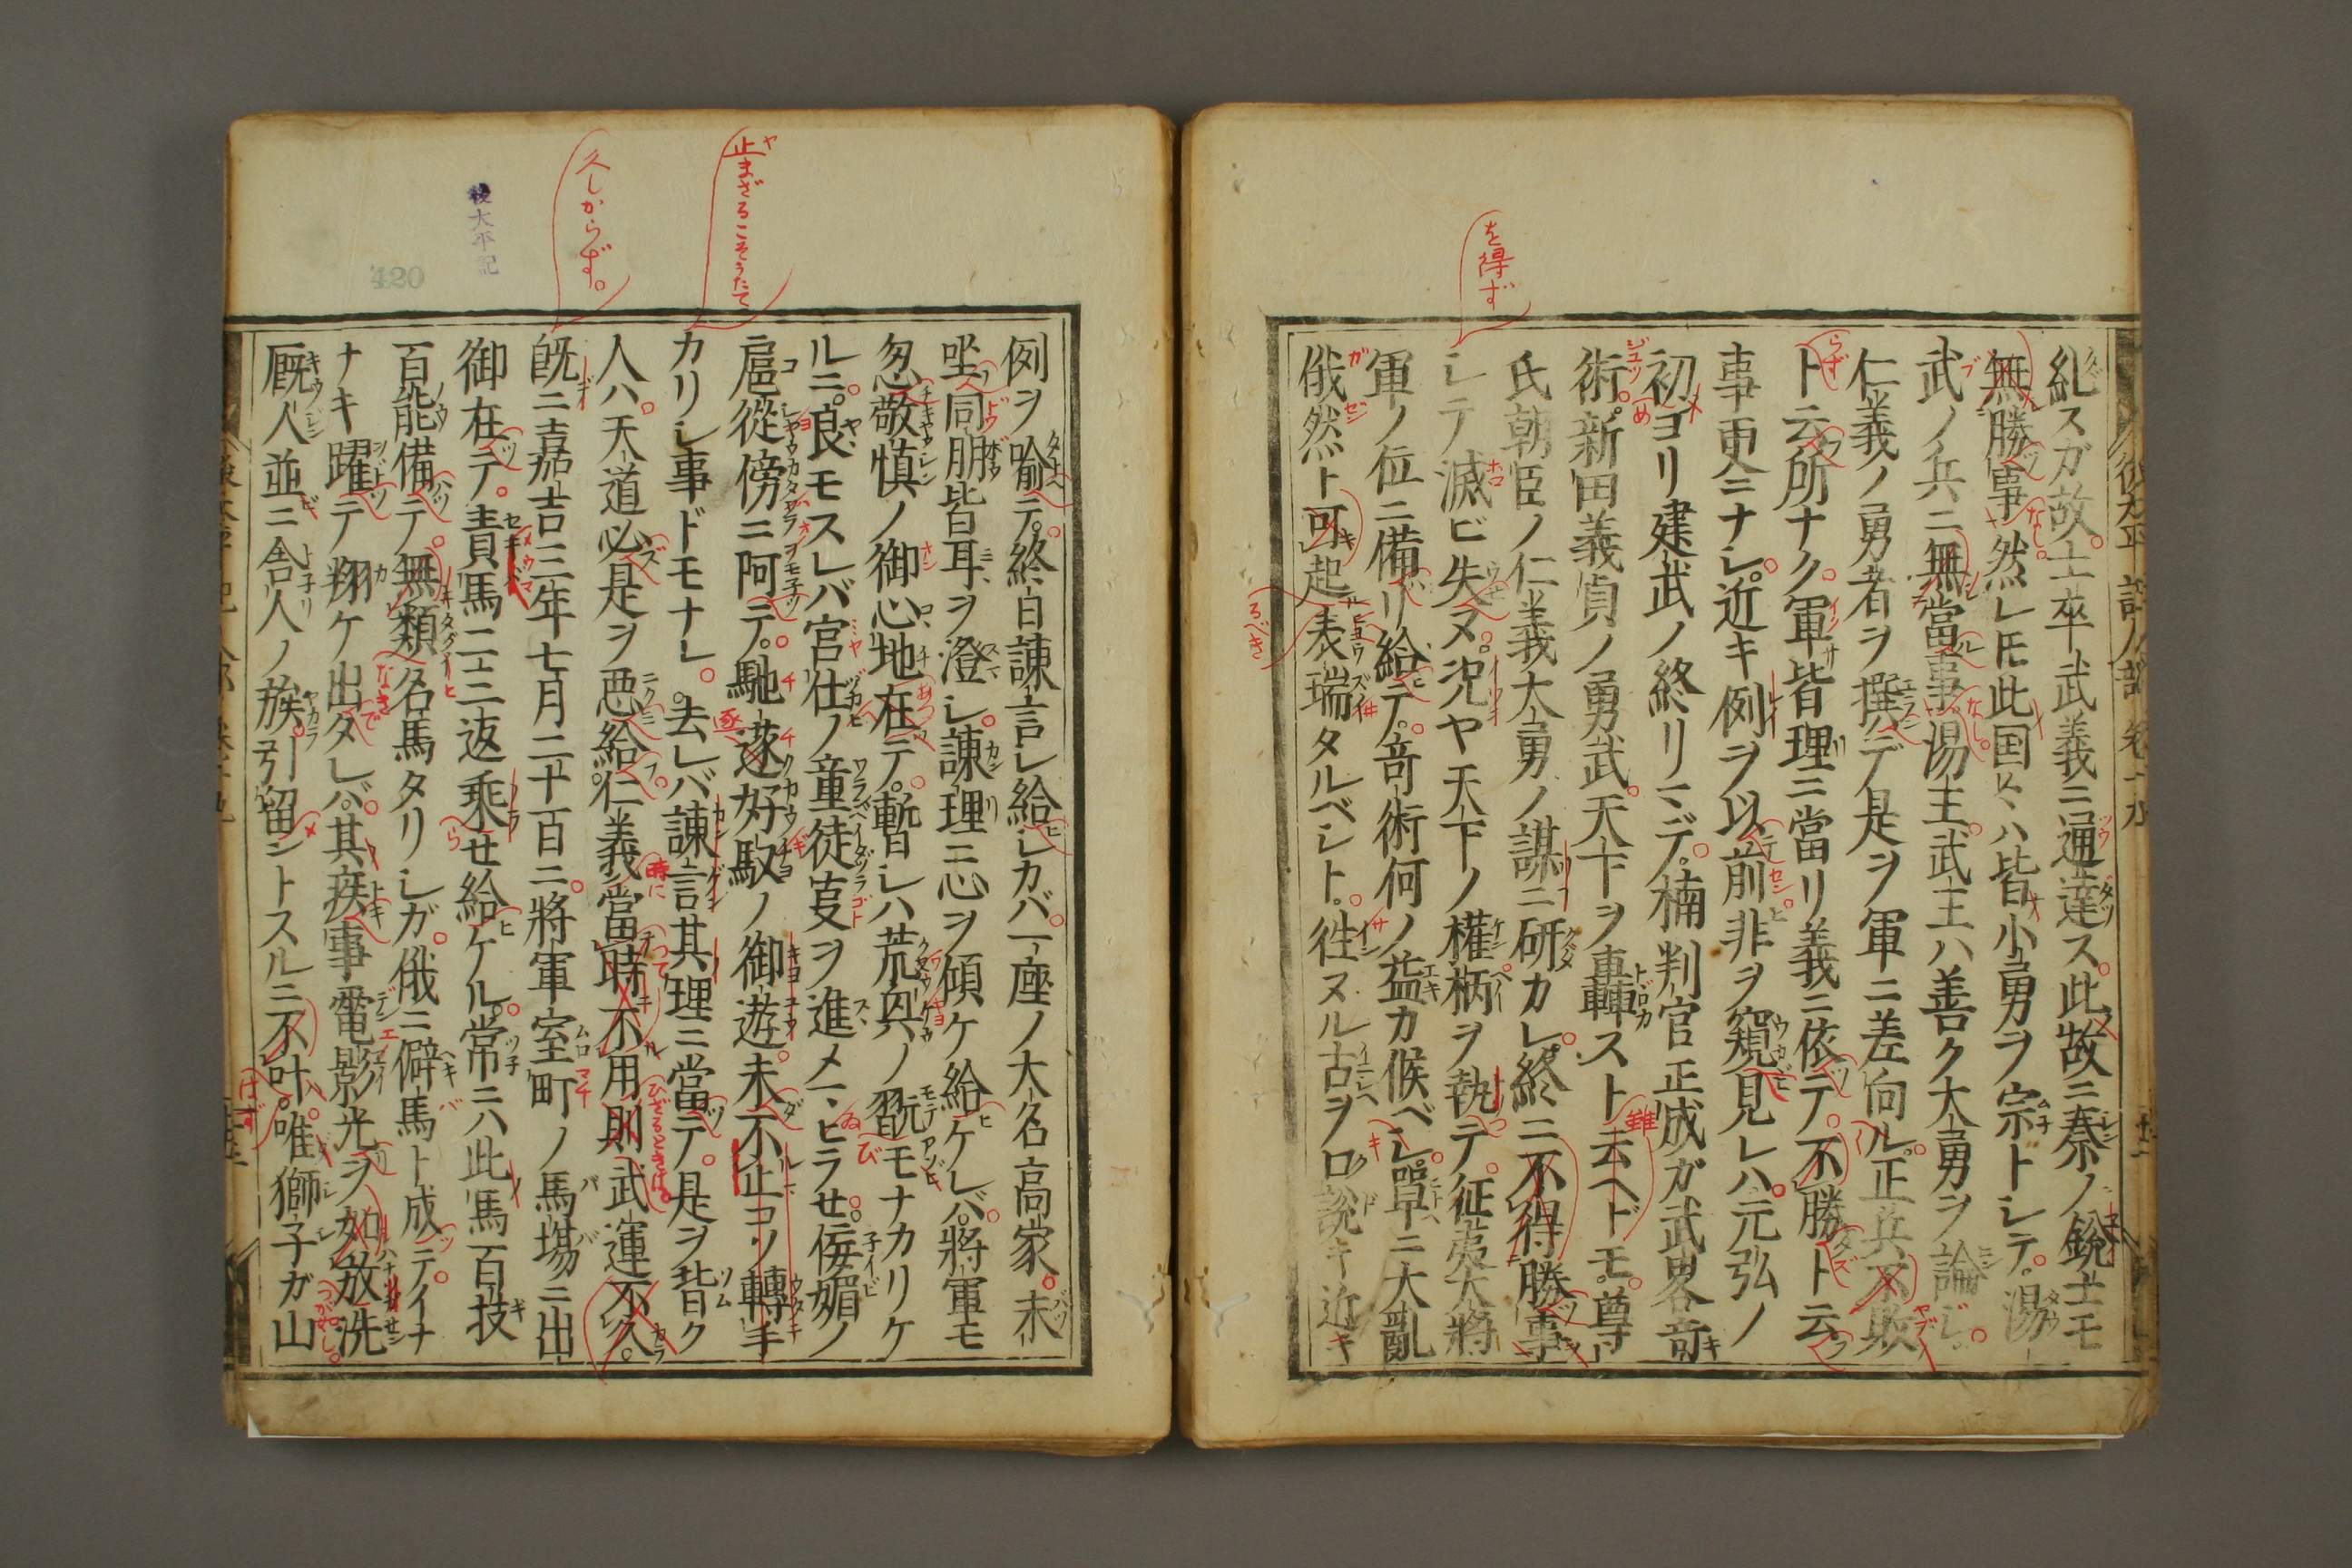 糺スガ故士卒武義ニ通達ス此故ニ秦ノ銳士モ
無勝事然レ𪜈此国ニハ皆小勇ヲ宗トシテ湯
武ノ兵ニ無當事湯王武王ハ善ク大勇ヲ論ジ
仁義ノ勇者ヲ撰デ是ヲ軍ニ差向ル正兵不敗
ト云所ナク軍皆理ニ當リ義ニ依テ不勝ト云
事更ニナシ近キ例ヲ以前非ヲ窺見レハ元弘ノ
初ヨリ建武ノ終リマデ楠判官正成ガ武畧竒
術新田義貞ノ勇武天下ヲ轟スト云ヘドモ尊
氏朝臣ノ仁義大勇ノ謀ニ研カレ終ニ不得勝事
シテ滅ビ失ヌ況ヤ天下ノ權柄ヲ執テ征夷大將
軍ノ位ニ備リ給テ竒術何ノ益カ候ベシ單ニ大亂
俄然ト可起表瑞タルベシト徃ヌル古ヲ口説キ近キ
を得ず
例ヲ喻テ終日諫言シ給シカバ一座ノ大名高家末
坐同朋皆耳ヲ澄シ諫理ニ心ヲ傾ケ給ケレバ將軍モ
忽敬慎ノ御心地在テ暫シハ荒興ノ翫モナカリケ
ルニ良モスレバ宮仕ノ童徒叓ヲ進メマヒラセ佞媚ノ
扈從傍ニ阿テ馳逐好馭ノ御遊未不止コソ轉手
カリシ事ドモナレ去レバ諫言其理ニ當テ是ヲ背ク
人ハ天道必是ヲ惡給仁義當時不用則武運不久
既ニ嘉吉三年七月二十日ニ將軍室町ノ馬塲ニ出
御在テ責馬二三返乘せ給ケル常ニハ此馬百技
百能備テ無類名馬タリシガ俄ニ僻馬ト成テイナ
ナキ躍テ翔ケ出タレバ其疾事電影光ヲ如放洗
厩人並ニ舎人ノ族引留ントスルニ不叶唯獅子ガ山
止まざるこそうたて
久しからず。
後太平記
420